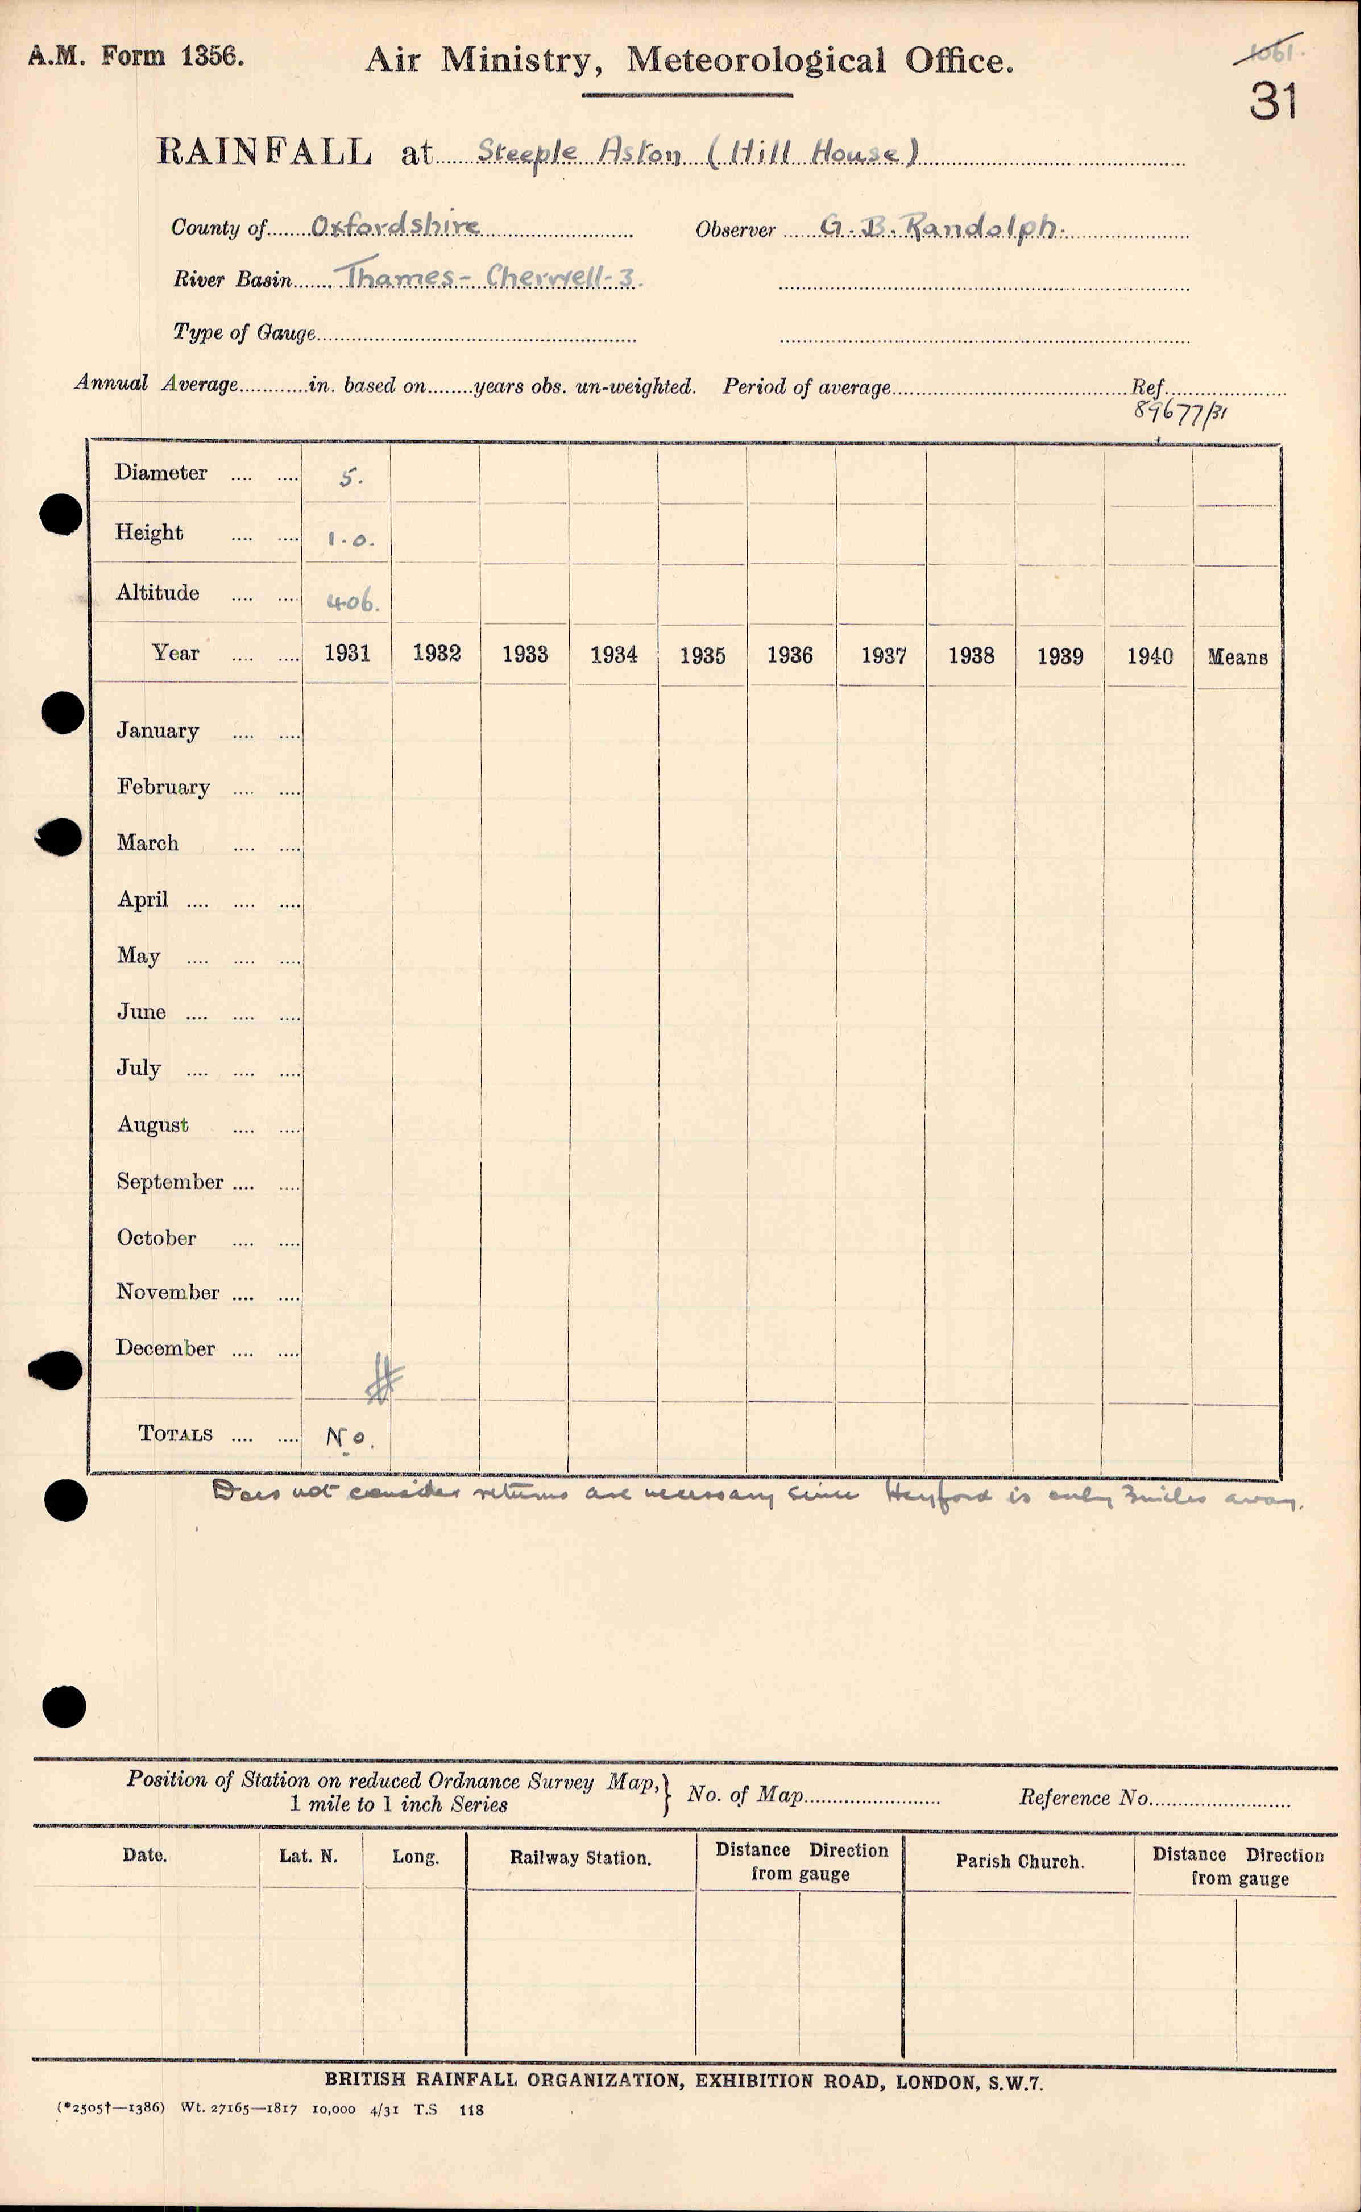 A.M. Form 1356.
Air Ministry, Meteorological Office.
1061.
31
RAINFALL at Steeple Aston (Hill House)
County of Oxfordshire Observer G. B. Randolph.
River Basin Thames - Cherwell - 3.
Type of Gauge
Annual Average in. based on years obs. un-weighted. Period of average Ref.
89677/31
Diameter 5.
Height 1.0.
Altitude 406.
Year 1931 1932 1933 1934 1935 1936 1937 1938 1939 1940 Means
January
February
March
April
May
June
July
August
September
October
November
December
#
TOTALS No.
Does not consider returns are necessary since Heyford is only 3 miles away.
Position of Station on reduced Ordnance Survey Map, } No. of Map Reference No.
1 mile to 1 inch Series
Date. Lat. N. Long. Railway Station. Distance Direction from gauge Parish Church. Distance Direction from gauge
BRITISH RAINFALL ORGANIZATION, EXHIBITION ROAD, LONDON, S.W.7.
(*2505†—1386) Wt. 27165—1817 10,000 4/31 T.S 118